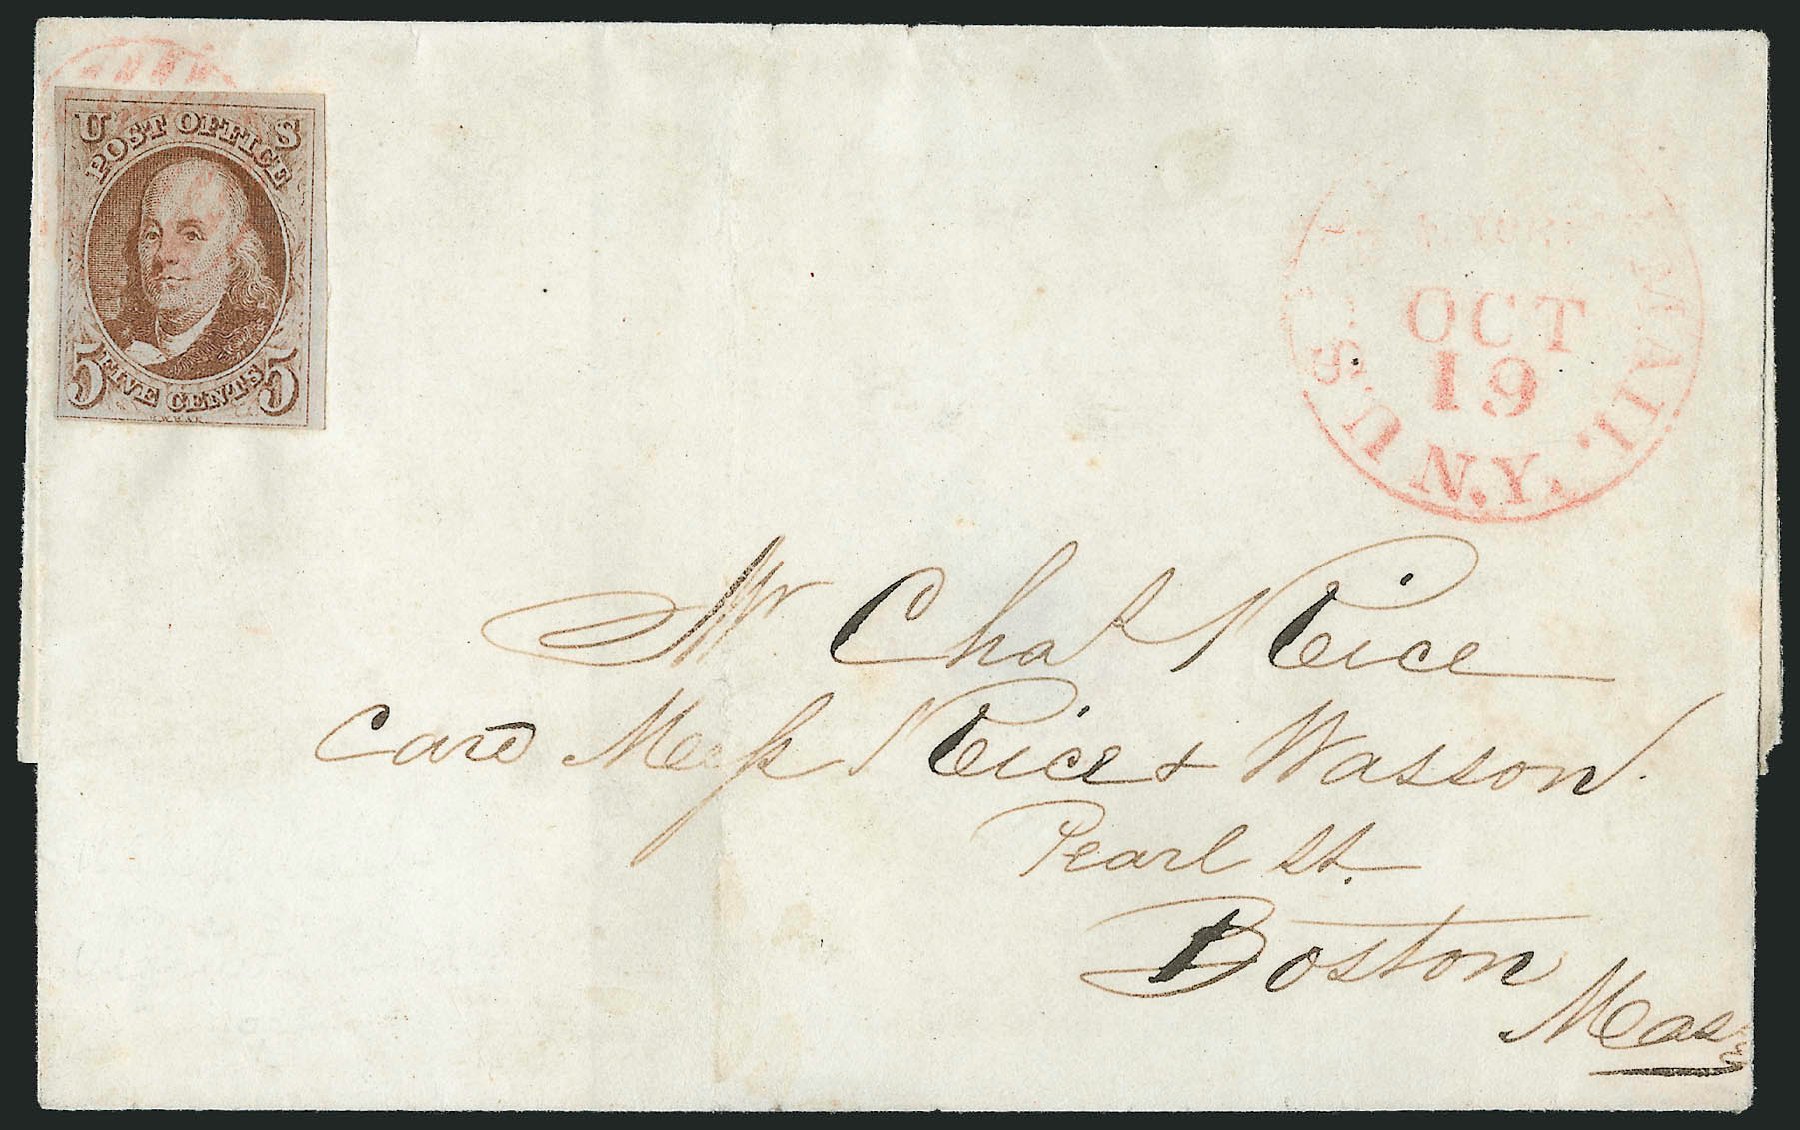 U S
POST OFFICE
5 FIVE CENTS 5
U.S. MAIL
OCT
19
N.Y.
Mr Chas Rice
Care Mess Rice & Wasson
Pearl St.
Boston
Mass